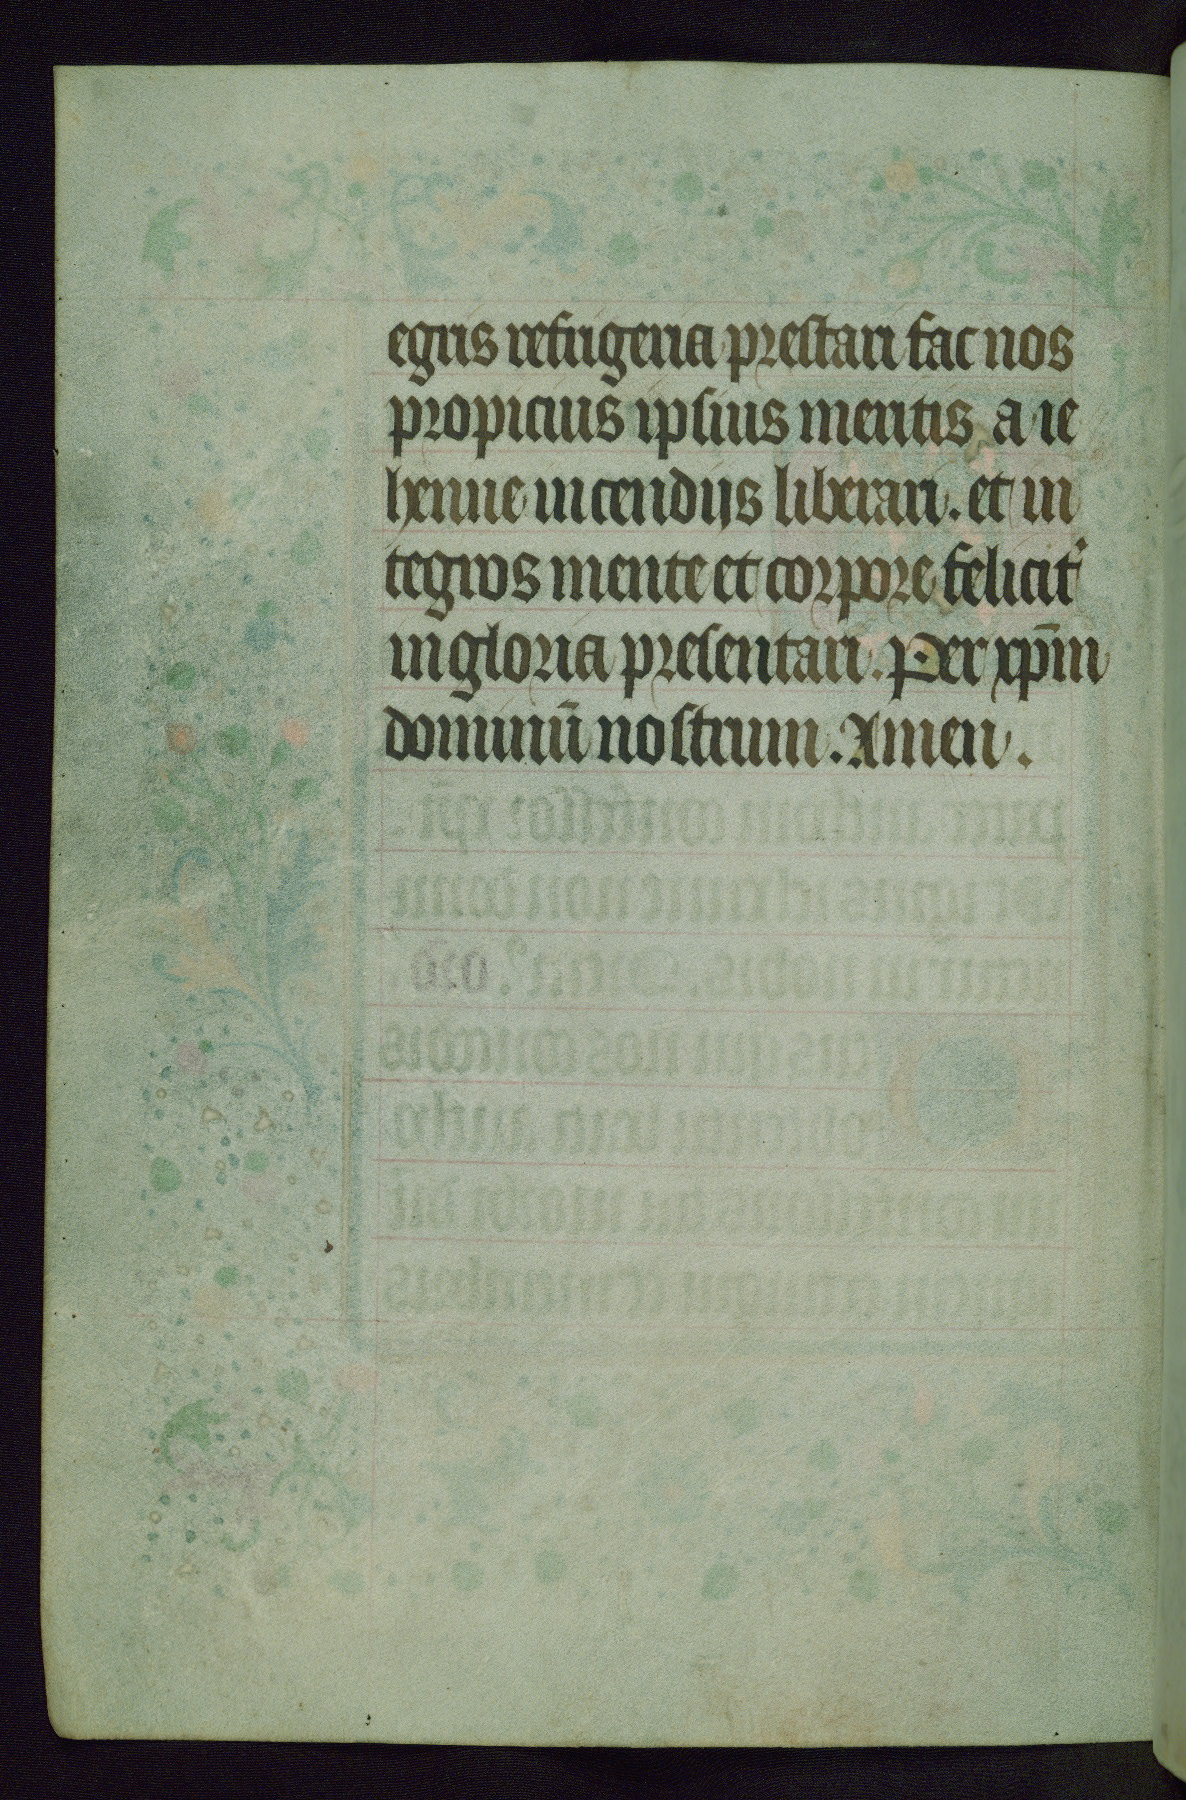 egris refrigeria prestari fac nos
propicius ipsius meritis a ie
henne incendijs liberari. et in
tegros mente et corpore felicit᷑
in gloria presentari. Per xp̄m
dominū nostrum. Amen.